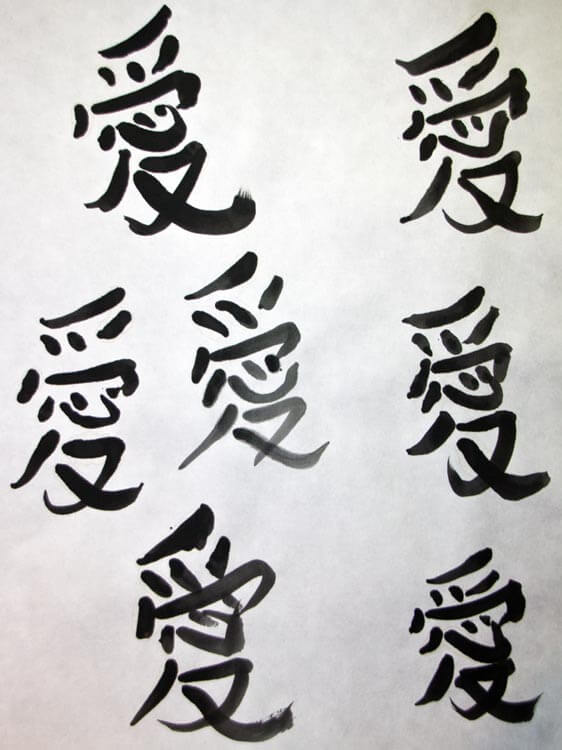 愛 愛
愛 愛 愛
愛 愛